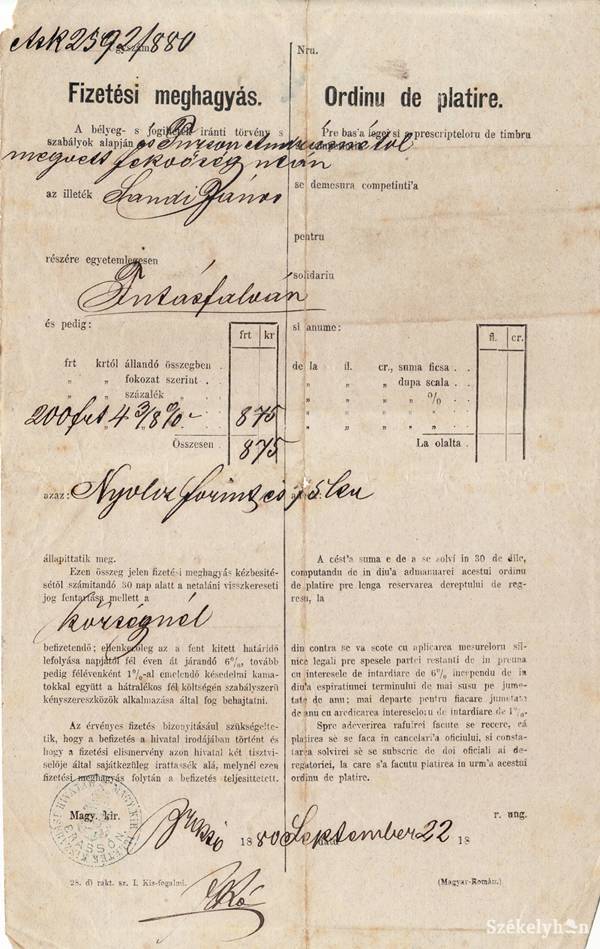 Ask 2592/880 gyszám
Fizetési meghagyás.
A bélyeg- s jogilleték iránti törvény s
szabályok alapján és
megvett fekvőség után
az illeték Sandi János
részére egyetemlegesen
Intásfalván
és pedig:
frt kr
frt krtól állandó összegben . .
„ „ fokozat szerint . .
„ „ százalék . .
200 frt 4 3/8 % 8 75
Összesen . 8 75
azaz: Nyolcz forint és 75 kr
állapittatik meg.
Ezen összeg jelen fizetési meghagyás kézbesité-
sétől számitandó 30 nap alatt a netaláni visszkereseti
jog fentartása mellett a
községnél
befizetendő; ellenkezőleg az a fent kitett határidő
lefolyása napjától fél éven át járandó 6%, tovább
pedig félévenként 1%-al emelendő késedelmi kama-
tokkal együtt a hátralékos fél költségén szabályszerű
kényszereszközök alkalmazása által fog behajtatni.
Az érvényes fizetés bizonyitásául szükségelte-
tik, hogy a befizetés a hivatal irodájában történt és
hogy a fizetési elismervény azon hivatal két tisztvi-
selője által sajátkezüleg irattassék alá, melynél ezen
fizetési meghagyás folytán a befizetés teljesittetett.
Magy. kir. Brassó 1880 September 22
28. d) rakt. sz. I. Kis-fogalmi.
Nru.
Ordinu de platire.
Pre bas'a legei si a prescripteloru de timbru
se demesura competinti'a
pentru
solidariu
si anume:
fl. cr.
de la fl. cr., suma ficsa . .
„ „ „ dupa scala . .
„ „ „ „ % . .
„ „ „ „ „
La olalta .
A cést'a suma e de a se solví in 30 de dile,
computandu de in diu'a admanuarei acestui ordinu
de platire pre lenga reservarea dereptului de reg-
resu, la
din contra se va scote cu aplicarea mesureloru sil-
nice legali pre spesele partei restanti de in preuna
cu interesele de intardiare de 6% incependu de in
diu'a espiratiunei terminului de mai susu pe jume-
tate de anu; mai departe pentru fiacare jumetate
de anu cu aredicarea intereseloru de intardiare de 1%.
Spre adeverirea rafuirei facute se recere, cá
platirea sè se faca in cancelari'a oficiului, si consta-
tarea solvirei sè se subscric de doi oficiali ai de-
regatoriei, la care s'a facutu platirea in urm'a acestui
ordinu de platire.
18 r. ung.
(Magyar-Román.)
Székelyhon